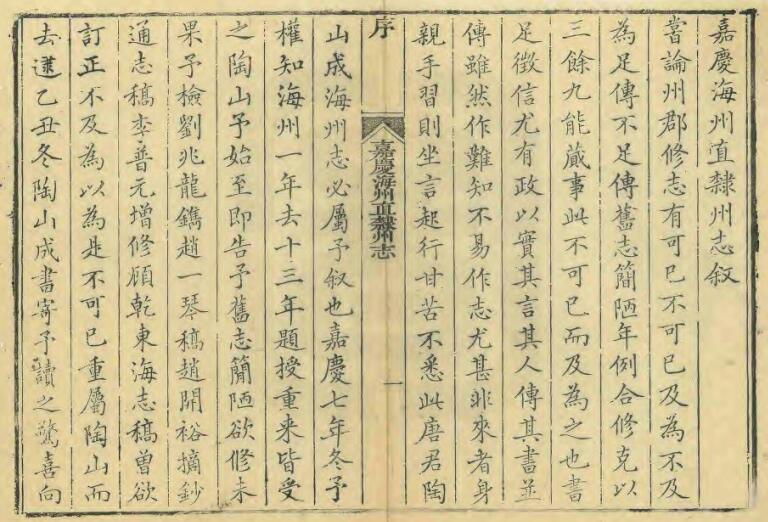 嘉慶海州直隸州志叙
嘗論州郡修志有可已不可已及為不及
為足傳不足傳舊志簡陋年例合修克以
三餘九能蕆事此不可已而及為之也書
足徵信尤有政以實其言其人傳其書並
傳雖然作難知不易作志尤甚非來者身
親手習則坐言起行甘苦不悉此唐君陶
序
嘉慶海州直隸州志
一
山成海州志必屬予叙也嘉慶七年冬予
權知海州一年去十三年題授重来皆受
之陶山予始至即告予舊志簡陋欲修未
果予檢劉兆龍鐫趙一琴稿趙開裕摘鈔
通志稿李普元增修顧乾東海志稿曾欲
訂正不及為以為是不可已重屬陶山而
去逮乙丑冬陶山成書寄予讀之驚喜向